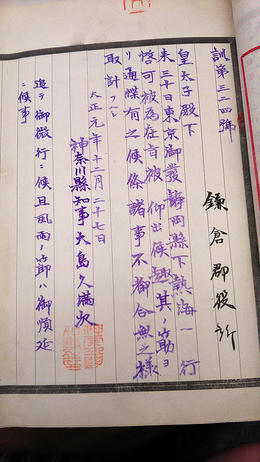 訓第三二四號
鎌倉郡役所
皇太子殿下
来三十日東京御發静岡縣下熱海ニ行
啓可被為在旨被 仰出候趣其ノ筋ヨ
リ通牒有之候條諸事不都合無之様
取計フヘシ
大正元年十二月二十七日
神奈川縣知事大島久滿次
追テ御微行ニ候且風雨ノ節ハ御順延
ニ候事